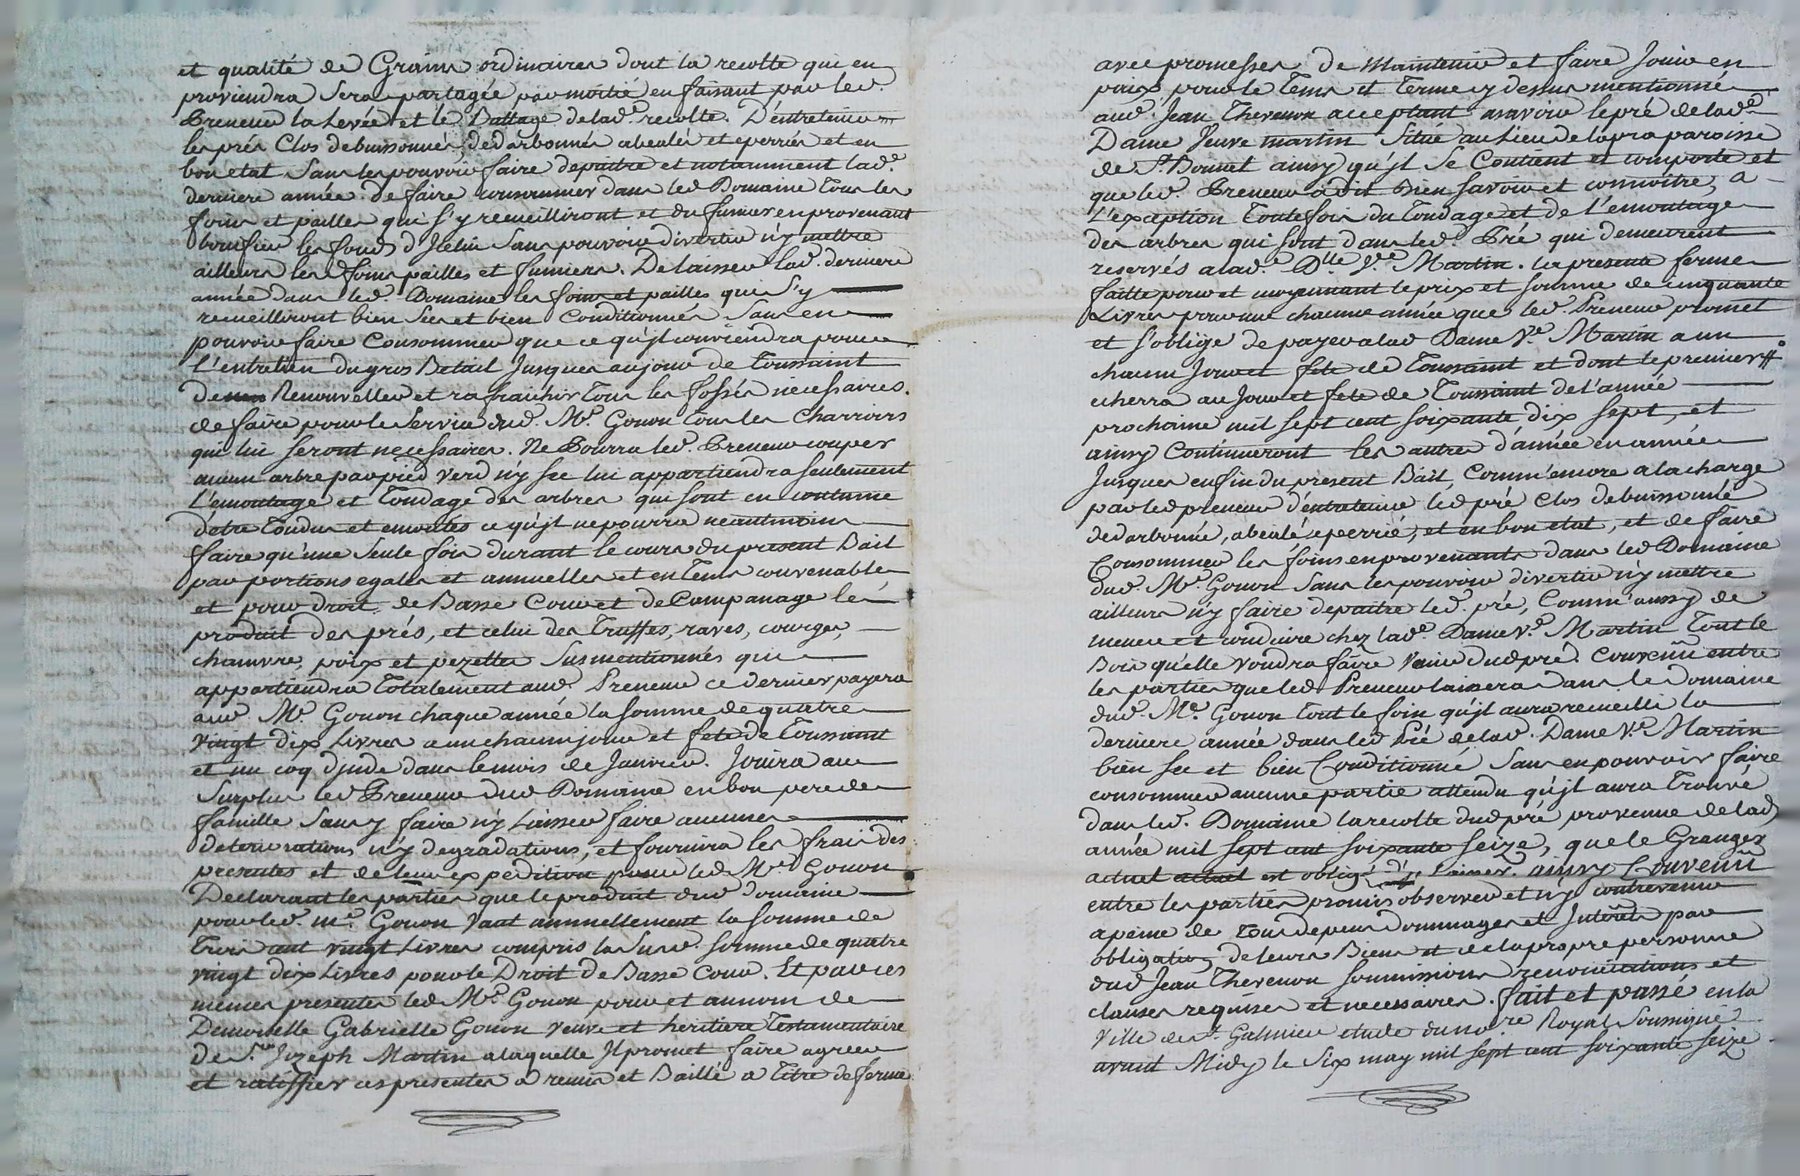 et qualité de Grains ordinaires dont la recolte qui en
proviendra Sera partagée par moitié en faisant par led.
Preneur la Levée et le Battage de lad.e recolte. D'entretenir
les prés Clos debuissonnés, dedarbonnés abealés et eperriés et en
bon etat Sans les pouvoir faire depaitre et notamment lad.e
derniere année de faire consommer dans led Domaine tous les
foins et pailles qui s'y recueilliront et du fumier en provenant
bonifier les fonds d'Jcelui Sans pouvoir divertir n'y mettre
ailleurs les foins pailles et fumiers. Delaisser lad. derniere
année dans led. Domaine les foins et pailles qui S'y
recueilliront bien Secs et bien Conditionnés Sans en
pouvoir faire Consommer que ce qu'jl conviendra pour
l'entretien du gros Betail Jusques au jour de Toussaint
de Renouveller et rafraichir Tous les fossés necessaires.
de faire pour le Service dud. Me. Gonon Tous les Charrois
qui lui seront necessaires. Ne Pourra led. Preneur couper
aucun arbre par pied Verd n'y sec lui appartiendra seulement
L'emontage et Tondage des arbres qui sont en coutume
d'etre Tondus et emontés ce qu'jl ne pourra neantmoins
faire qu'une Seule fois durant le cours du present Bail
par portions egales et annuelles et en Tems convenable
et pour droit de Basse Cour et de Companage le
produit des prés, et celui des Truffes, raves, courges,
chanvre, poix et pezettes Susmentionnés qui
appartiendra Totalement aud. Preneur ce dernier payera
aud Me. Gonon chaque année la somme de quatre
vingt dix Livres a un chacun jour et fete de Toussaint
et un coq d'jnde dans le mois de Janvier. Jouira au
Surplus led Preneur dud Domaine en bon pere de
famille Sans y faire n'y Laisser faire aucunes
deteriorations n'y degradations, et fournira les frais des
presentes et de leur expedition pour led Me. Gonon
Declarant les parties que le produit dud domaine
pour led. me. Gonon Vaut annuellement la somme de
Trois cent vingt Livres compris la susd. somme de quatre
vingt dix Livres pour le Droit de Basse Cour. Et par ces
memes presentes led Me. Gonon pour et au nom de
Demoiselle Gabrielle Gonon Veuve et heritiere Testamentaire
de S.r Jozeph Martin a laquelle Jl promet faire agreer
et ratiffier ces presentes a remis et Baillé a Titre de ferme
avec promesses de Maintenir et faire Jouir en
paix pour le Tems et Terme cy dessus mentionné
aud. Jean Thevenon acceptant asavoir le pré de lad.e
Dame Veuve martin Situé au Lieu de lapra paroisse
de St. Bonnet ainsy qu'jl se Contient et comporte et
que led. Preneur a dit Bien Savoir et connoitre, a
L'exception Toutefois du Tondage et de l'emontage
des arbres qui sont dans led. Pré qui demeurent
reservés a lad.e Dlle Ve. Martin. la presente ferme
faitte pour et moyennant le prix et somme de cinquante
Livres pour une chacune année que led. Preneur promet
et s'oblige de payer a lad Dame Ve. Martin a un
chacun Jour et fete de Toussaint et dont le premier
echerra au Jour et fete de Toussaint de l'année
prochaine mil sept cent soixante dix sept, et
ainsy Continueront les autres d'année en année
Jusques en fin du present Bail, Comm'encore a la charge
par led preneur d'entretenir led pré Clos debuissonné
dedarbonné, abealé eperrié, et en bon etat, et de faire
Consommer les foins en provenants dans led Domaine
dud. Me. Gonon Sans les pouvoir divertir n'y mettre
ailleurs n'y faire depaitre led. pré, Comm'aussy de
mener et conduire chez lad.e Dame Ve. Martin Tout le
Bois qu'elle voudra faire Venir dud pré. Convenu entre
les parties que led. Preneur laissera dans le Domaine
dud. Me. Gonon Tout le foin qu'jl aura recueilli la
derniere année dans led Pré de lad. Dame Ve. Martin
bien sec et bien Conditionné Sans en pouvoir faire
consommer aucune partie attendu qu'jl aura Trouvé
dans led. Domaine la recolte dud pré provenue de lad
année mil sept cent soixante seize, que le Granger
actuel actuel est obligé d'y Laisser. ainsy Convenû
entre les parties promis observer et n'y contrevenir
a peine de Tous depens dommages et Jnterêts par
obligation de leurs Biens et de la propre personne
dud Jean Thevenon soumissions renonciations et
clauses requises et necessaires. fait et passé en la
Ville de St. Galmier etude du no.re Royal Soussigné
avant Midy le Six may mil sept cent soixante seize.